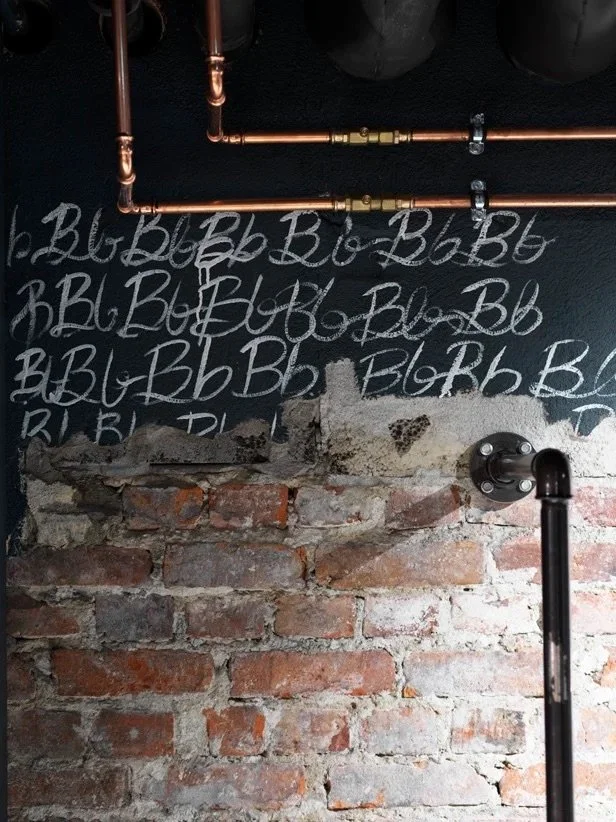 b Bb Bb Bb Bb Bb Bb
B Bb Bb Bb Bb Bb Bb
Bb Bb Bb Bb Bb Bb Bb